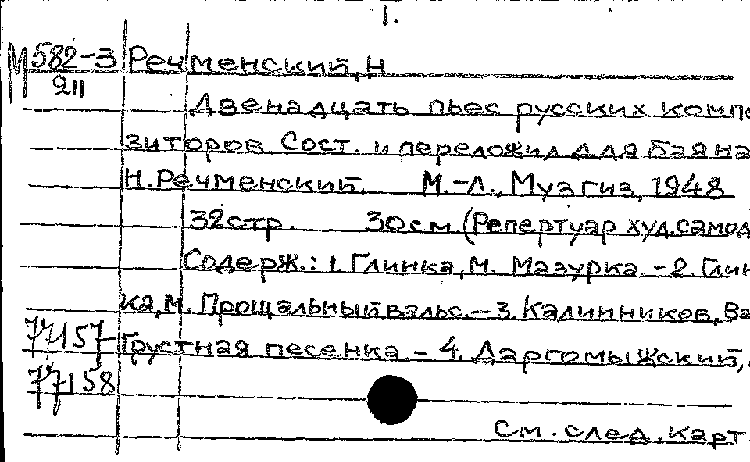 1.
М 582-3 Речменский, Н
211
Двенадцать пьес русских компо
зиторов Сост. и переложил для баяна
Н. Речменский. М.-Л., Музгиз, 1948
32 стр. 30 см. (Репертуар худ. самод
Содерж.: 1. Глинка, М. Мазурка. - 2. Глин
ка, М. Прощальный вальс. - 3. Калинников, Ва
77157- Грустная песенка - 4. Даргомыжский,
77158
См. след. карт